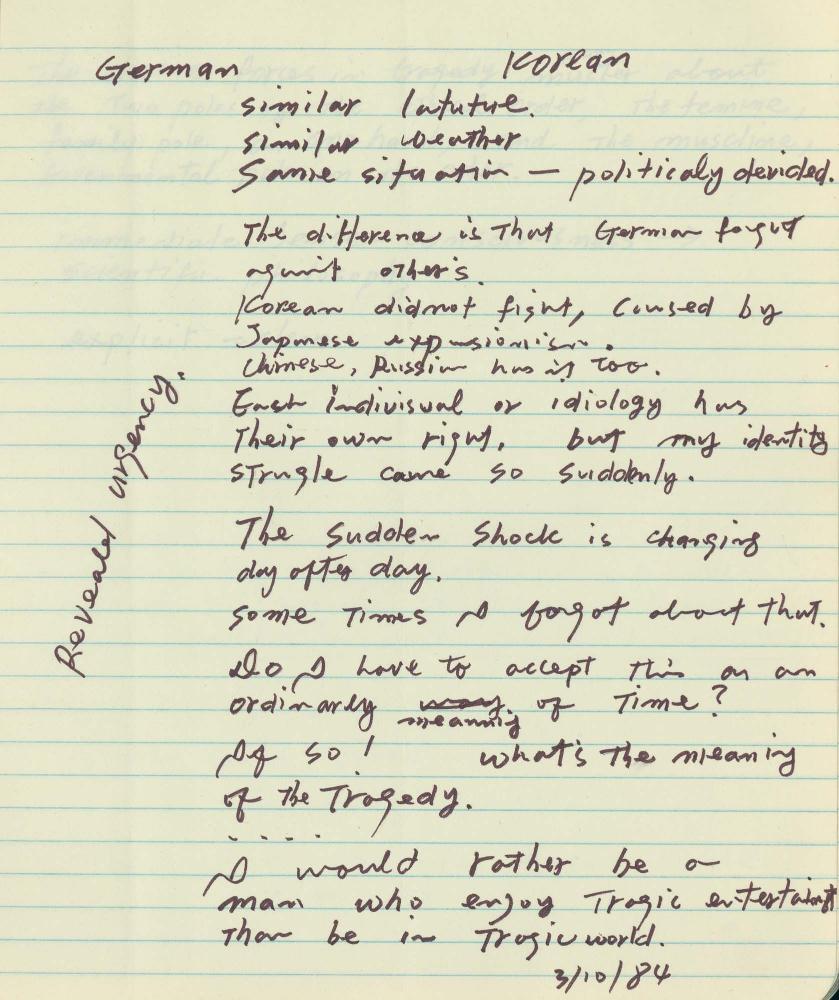 German Korean
similar latutue.
similar weather
Same situation — politicaly devided.
The difference is That German fought
against other's.
Korean didnot fight, caused by
Japanese expansionism.
Chinese, Russian has it Too.
Each indivisual or idiology has
Their own right, but my identity
strugle came so suddenly.
The sudden shock is changing
day after day.
some Times I forgot about that.
Do I have to accept this as an
ordinarly way of Time?
meannig
If so! what's The meaning
of the Tragedy.
. . . . .
I would rather be a
man who enjoy Tragic entertaint
Than be in Tragic world.
3/10/84
Reveald urgency.